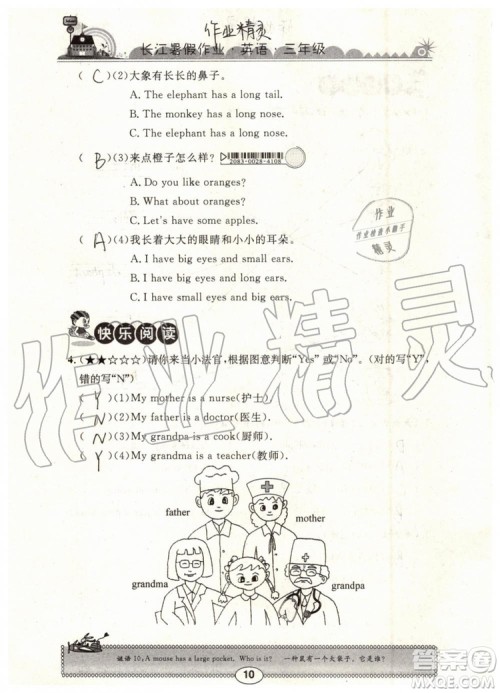 作业精灵
长江暑假作业·英语·三年级
( C )(2)大象有长长的鼻子。
A. The elephant has a long tail.
B. The monkey has a long nose.
C. The elephant has a long nose.
( B )(3)来点橙子怎么样?
2083-0028-4108
A. Do you like oranges?
B. What about oranges?
C. Let's have some apples.
( A )(4)我长着大大的眼睛和小小的耳朵。
A. I have big eyes and small ears.
B. I have big eyes and long ears.
C. I have small eyes and big ears.
快乐阅读
4.(★★☆☆☆)请你来当小法官,根据图意判断"Yes"或"No"。(对的写"Y",
错的写"N")
( Y )(1)My mother is a nurse(护士).
( N )(2)My father is a doctor(医生).
( N )(3)My grandpa is a cook(厨师).
( Y )(4)My grandma is a teacher(教师).
father
mother
grandma
grandpa
谜语 10:A mouse has a large pocket. Who is it? 一种鼠有一个大袋子,它是谁?
10
作业
作业检查小助手
精灵
作业精灵
答案圈